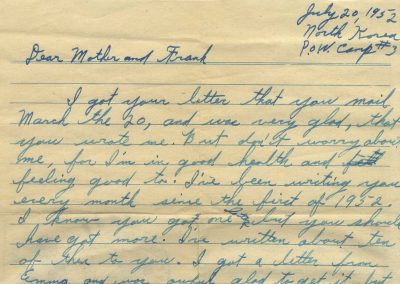 July 20, 1952
North Korea
P.O.W Camp #3
Dear Mother and Frank
I got your letter that you mail
March the 20, and was very glad, that
you wrote me. But don't worry about
me, for I'm in good health and
feeling good to. I've been writing you
every month sense the first of 1952.
I know you got one but you should
have got more. I've written about ten
of them to you. I got a letter from
Emma and was awful glad to get it but